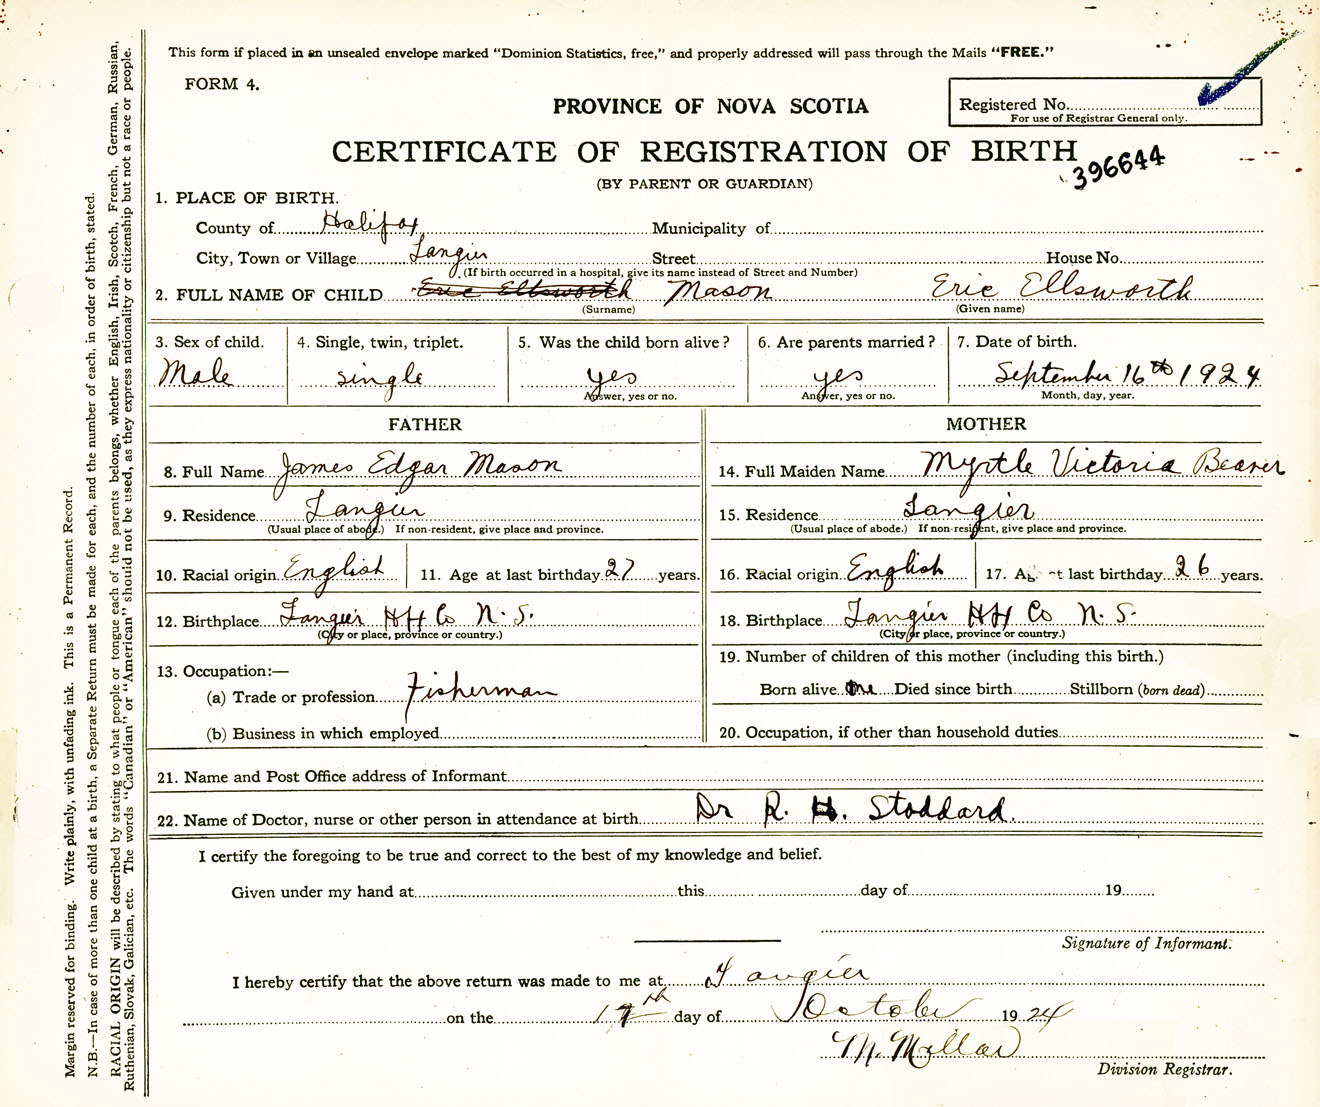 This form if placed in an unsealed envelope marked "Dominion Statistics, free," and properly addressed will pass through the Mails "FREE."
FORM 4.
PROVINCE OF NOVA SCOTIA
Registered No.
For use of Registrar General only.
CERTIFICATE OF REGISTRATION OF BIRTH
396644
(BY PARENT OR GUARDIAN)
1. PLACE OF BIRTH.
County of Halifax Municipality of
City, Town or Village Tangier Street House No.
(If birth occurred in a hospital, give its name instead of Street and Number)
2. FULL NAME OF CHILD Eric Ellsworth Mason Eric Ellsworth
(Surname) (Given name)
3. Sex of child. 4. Single, twin, triplet. 5. Was the child born alive? 6. Are parents married? 7. Date of birth.
Male single yes yes September 16th 1924
Answer, yes or no. Answer, yes or no. Month, day, year.
FATHER MOTHER
8. Full Name James Edgar Mason 14. Full Maiden Name Myrtle Victoria Beaver
9. Residence Tangier 15. Residence Tangier
(Usual place of abode.) If non-resident, give place and province. (Usual place of abode.) If non-resident, give place and province.
10. Racial origin English 11. Age at last birthday 27 years. 16. Racial origin English 17. Age at last birthday 26 years.
12. Birthplace Tangier HX Co N.S. 18. Birthplace Tangier HX Co N.S.
(City or place, province or country.) (City or place, province or country.)
13. Occupation:— 19. Number of children of this mother (including this birth.)
(a) Trade or profession Fisherman Born alive one Died since birth Stillborn (born dead)
(b) Business in which employed 20. Occupation, if other than household duties
21. Name and Post Office address of Informant
22. Name of Doctor, nurse or other person in attendance at birth Dr R. H. Stoddard.
I certify the foregoing to be true and correct to the best of my knowledge and belief.
Given under my hand at this day of 19
Signature of Informant.
I hereby certify that the above return was made to me at Tangier
on the 17th day of October 1924
M. Millar
Division Registrar.
Margin reserved for binding. Write plainly, with unfading ink. This is a Permanent Record.
N.B.—In case of more than one child at a birth, a Separate Return must be made for each, and the number of each, in order of birth, stated.
RACIAL ORIGIN will be described by stating to what people or tongue each of the parents belongs, whether English, Irish, Scotch, French, German, Russian,
Ruthenian, Slovak, Galician, etc. The words "Canadian" or "American" should not be used, as they express nationality or citizenship but not a race or people.